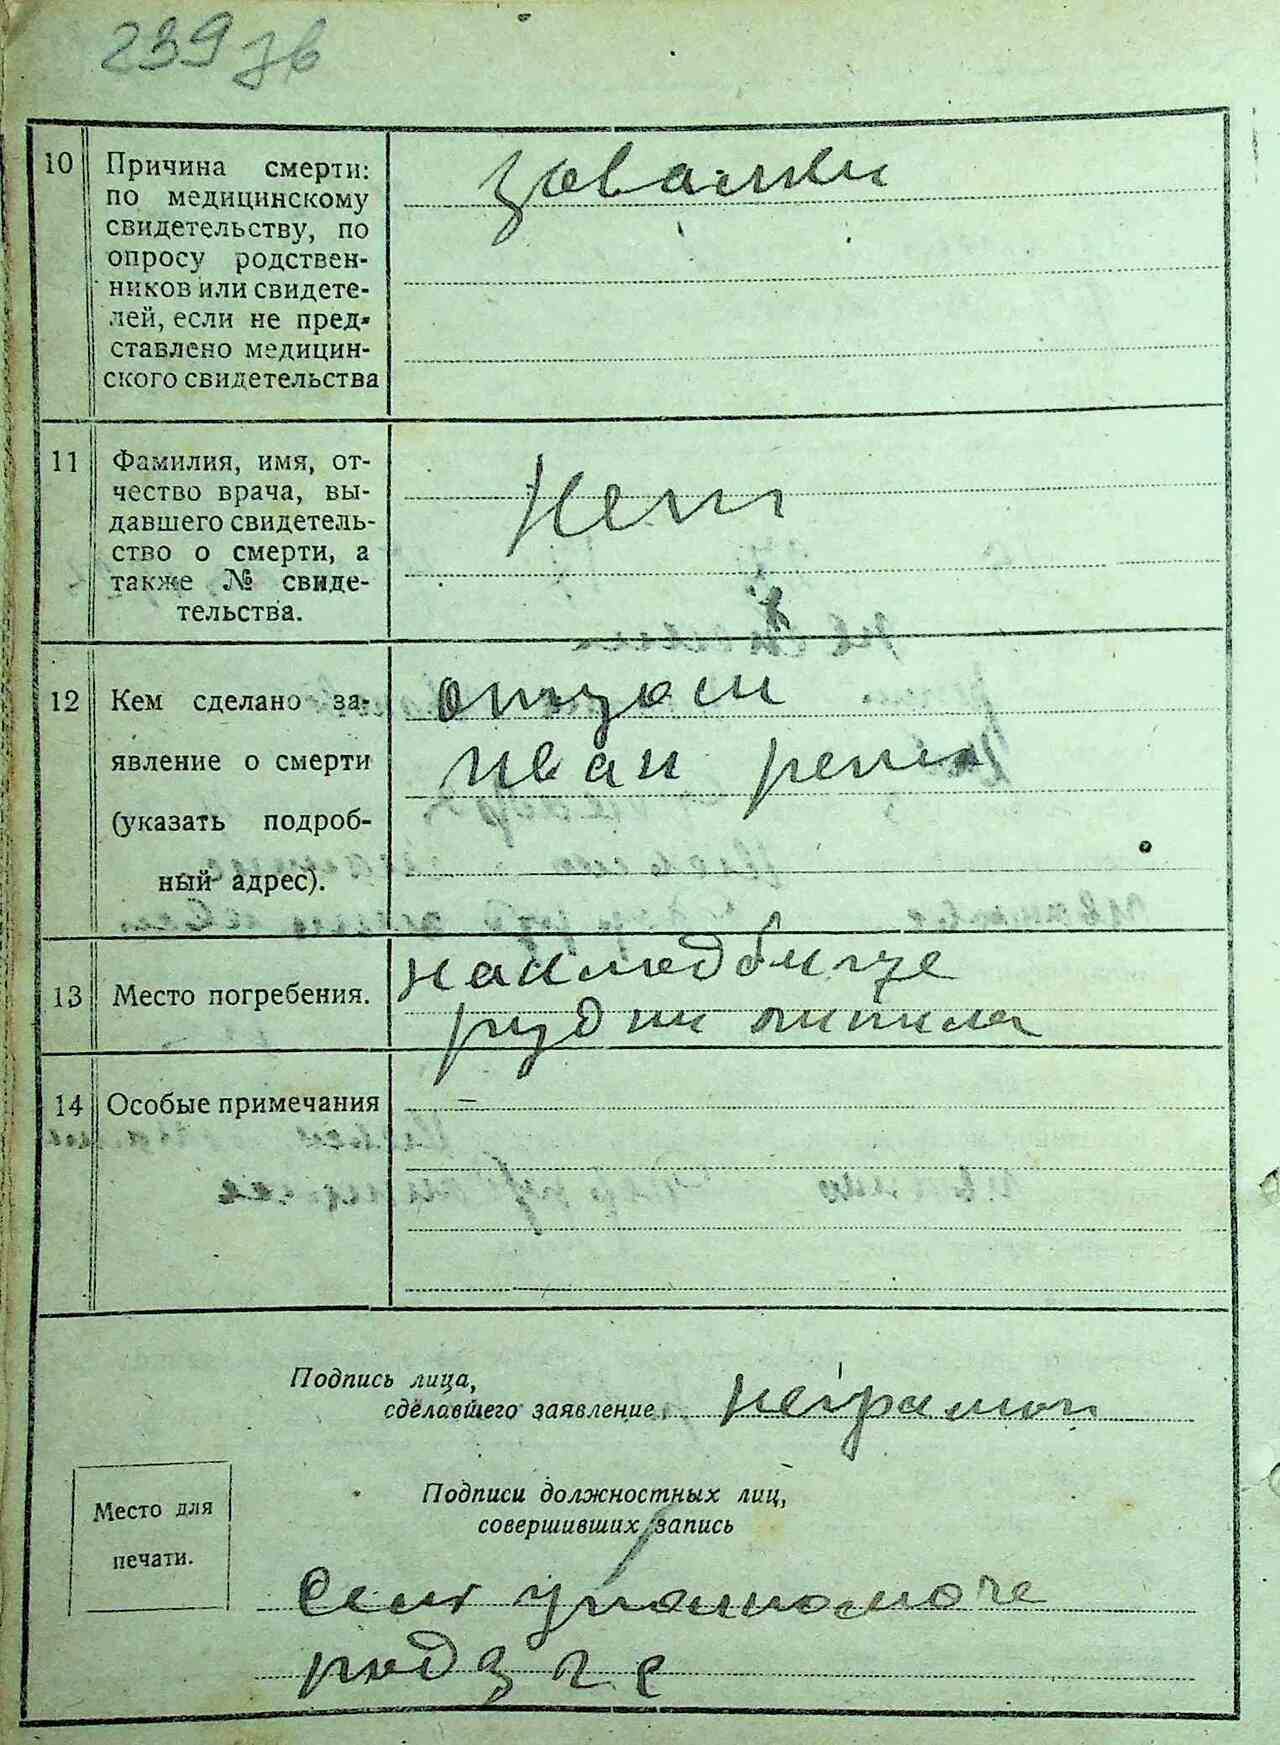 239 зв
10 Причина смерти:
по медицинскому
свидетельству, по
опросу родствен-
ников или свидете-
лей, если не пред-
ставлено медицин-
ского свидетельства
завалки
11 Фамилия, имя, от-
чество врача, вы-
давшего свидетель-
ство о смерти, а
также № свиде-
тельства.
нет
12 Кем сделано за-
явление о смерти
(указать подроб-
ный адрес).
отцом
иван
13 Место погребения.
накладбище
рудни
14 Особые примечания
–
Подпись лица,
сделавшего заявление
неграмот
Место для
печати.
Подписи должностных лиц,
совершивших запись